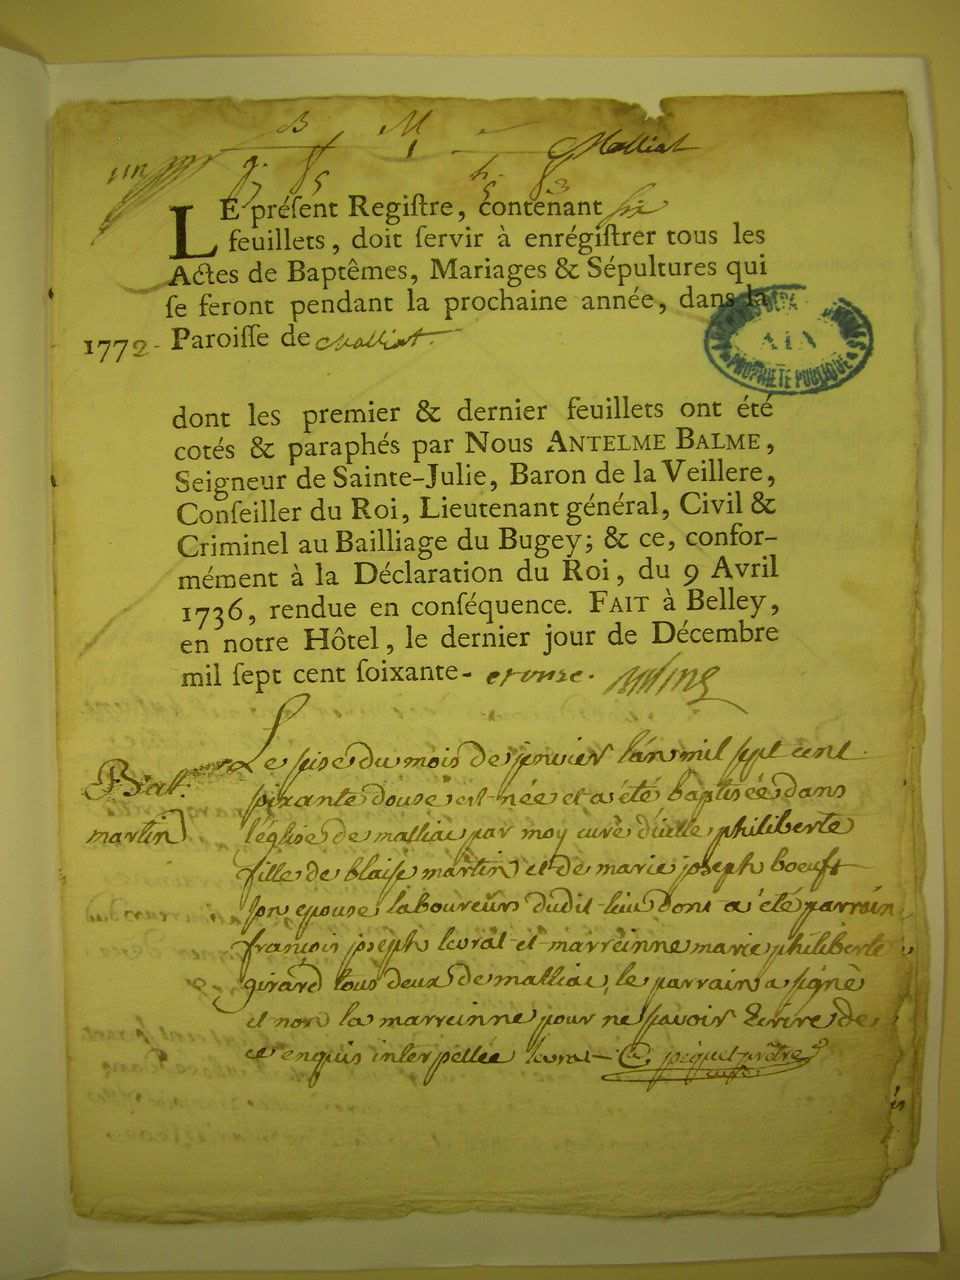 B M Malliat
LE préſent Regiſtre, contenant six
feuillets, doit ſervir à enrégiſtrer tous les
Actes de Baptêmes, Mariages & Sépultures qui
ſe feront pendant la prochaine année, dans la
1772. Paroiſſe de Malliat.
ARCHIVES DÉPARTEMENTALES AIN PROPRIÉTÉ PUBLIQUE
dont les premier & dernier feuillets ont été
cotés & paraphés par Nous ANTELME BALME,
Seigneur de Sainte-Julie, Baron de la Veillere,
Conſeiller du Roi, Lieutenant général, Civil &
Criminel au Bailliage du Bugey; & ce, confor-
mément à la Déclaration du Roi, du 9 Avril
1736, rendue en conſéquence. FAIT à Belley,
en notre Hôtel, le dernier jour de Décembre
mil ſept cent ſoixante- et onze.
Le sise du mois de janvier lan mil sept cent
Bat. soixante douse est née et a été baptisée dans
martin l'église de malliac par moy curé d'icelle philiberte
fille de blaise martin et de marie joseph boeuft
son epouse laboureurs dudit lieu dont a été parrain
françois joseph leurat et marreinne marie philiberte
girard tous deux de malliac, le parrain a signé
et non la marreinne pour ne savoir Ecrire de
ce enquis interpellée prêtre
curé